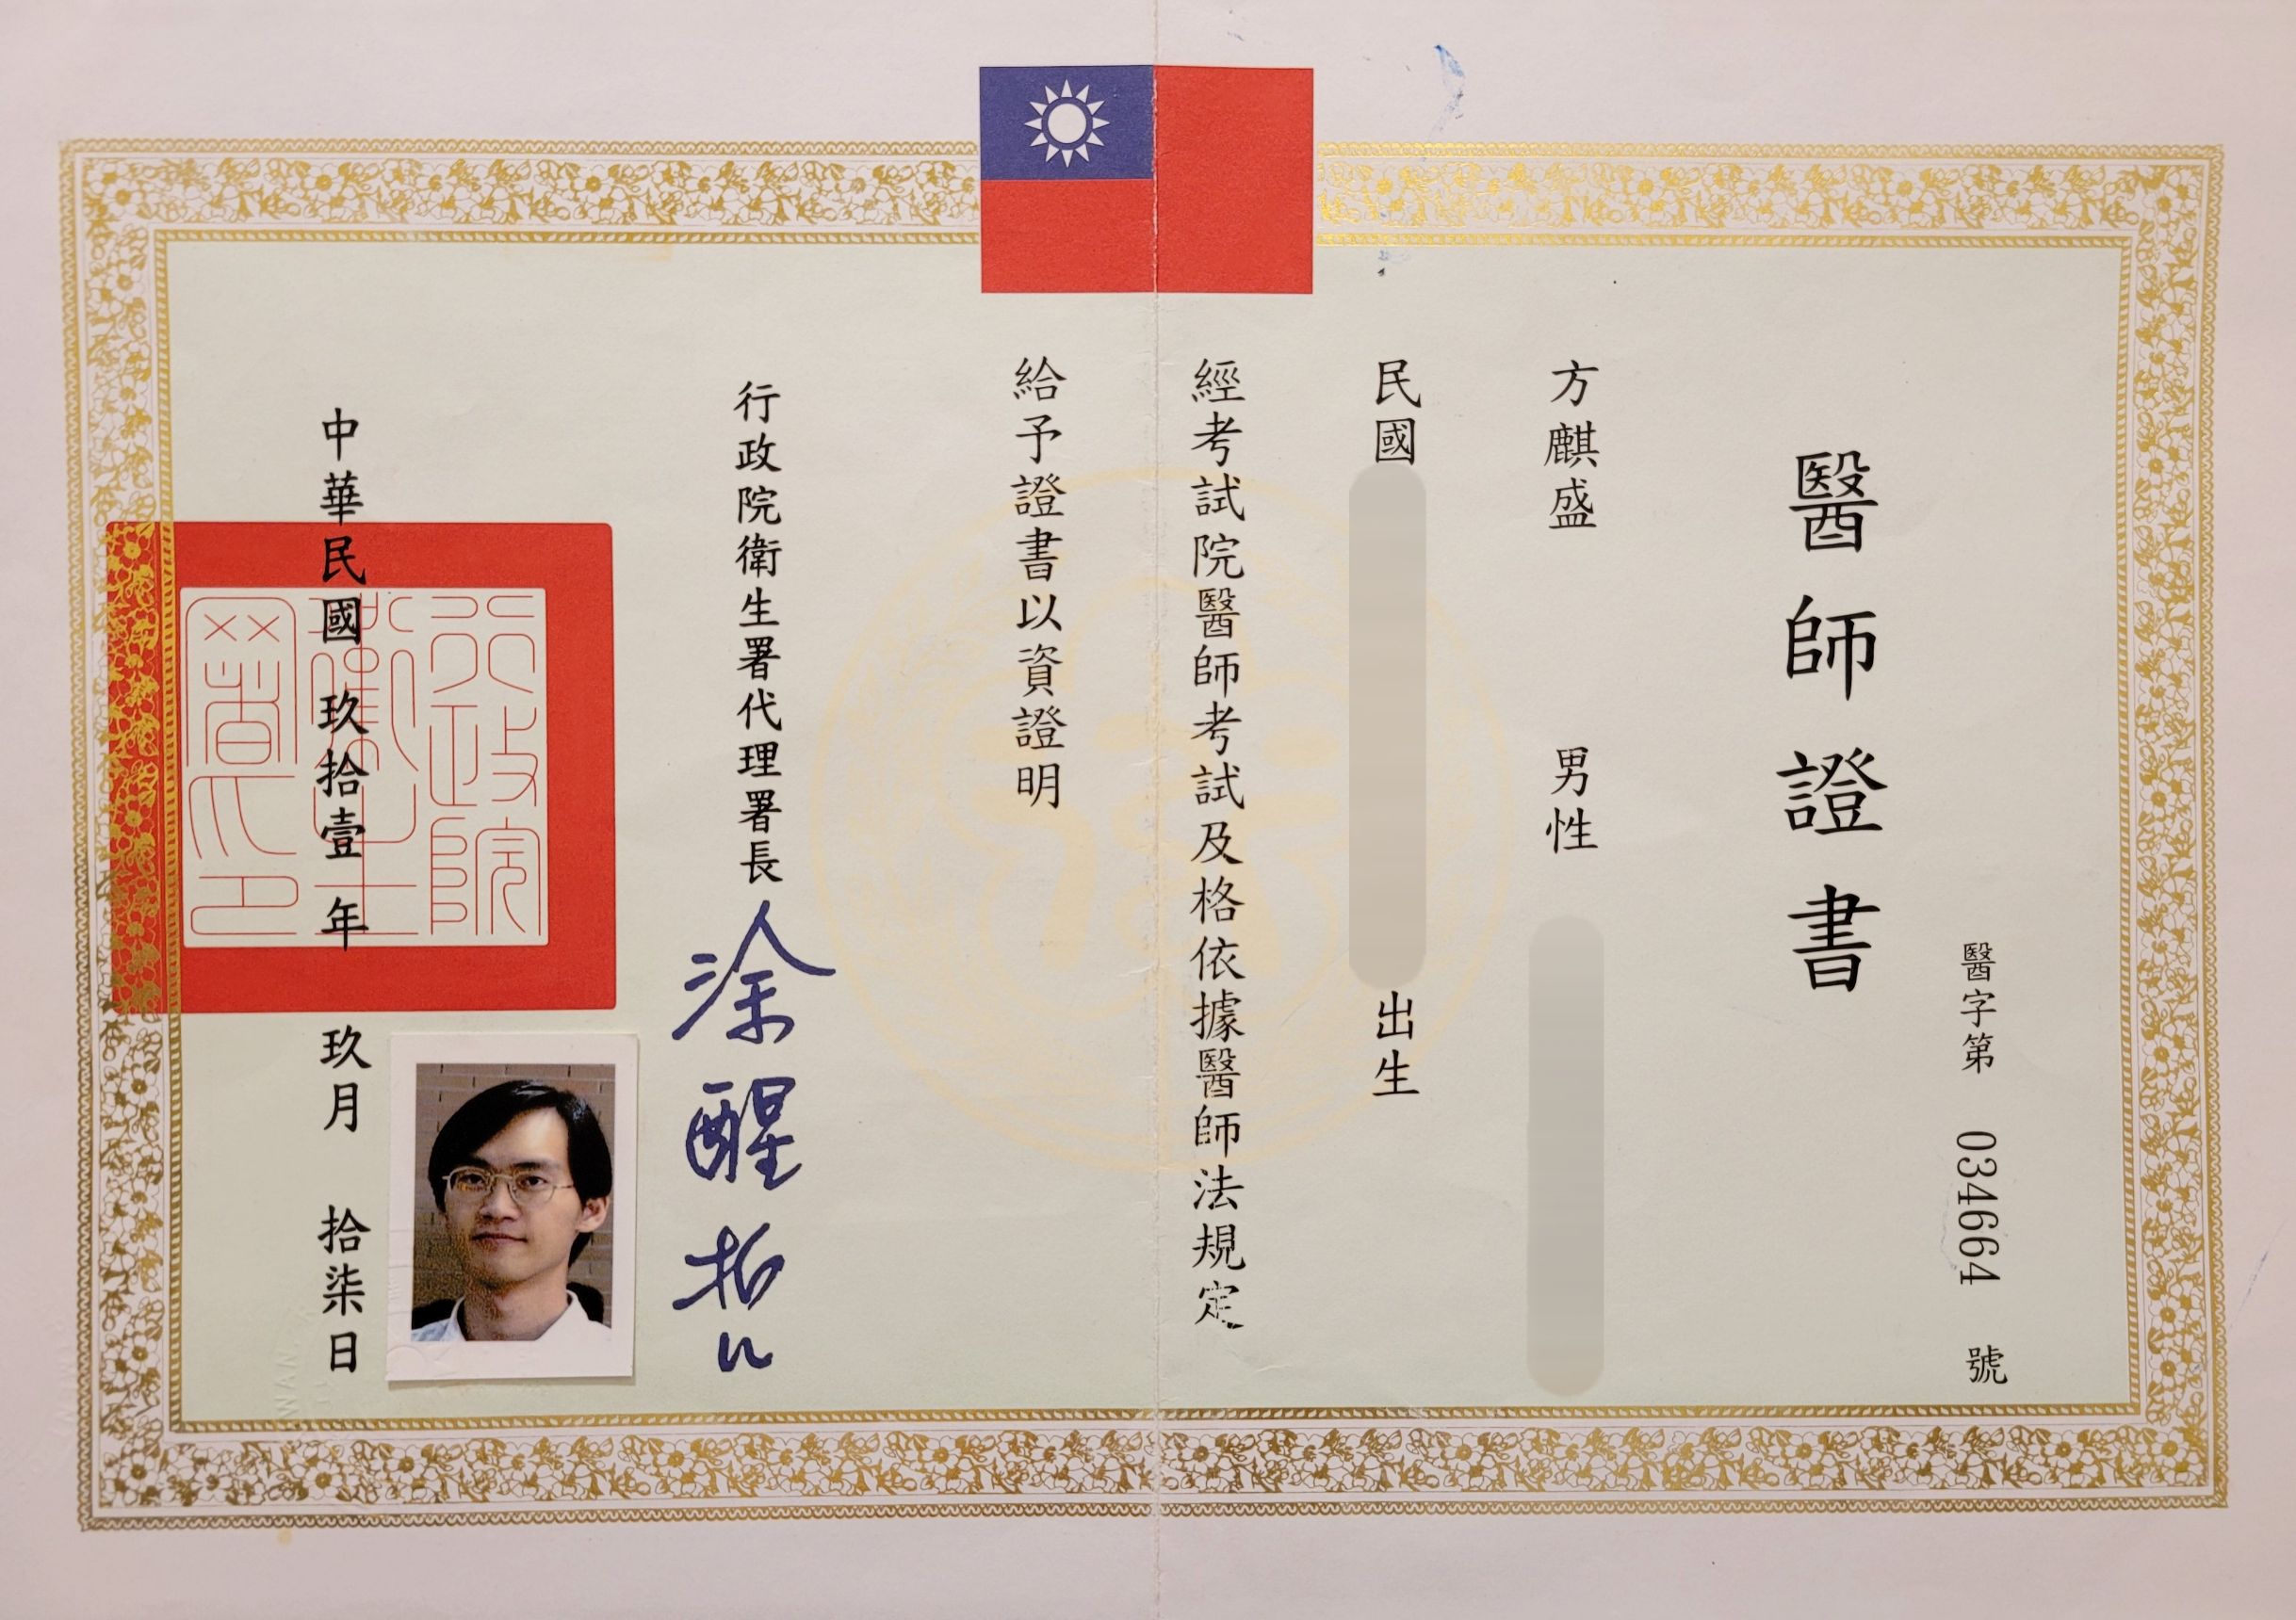 醫字第 034664 號
醫師證書
方麒盛 男性
民國 出生
經考試院醫師考試及格依據醫師法規定
給予證書以資證明
行政院衛生署代理署長 涂醒哲
中華民國 玖拾壹年 玖月 拾柒日
行政院衛生署印